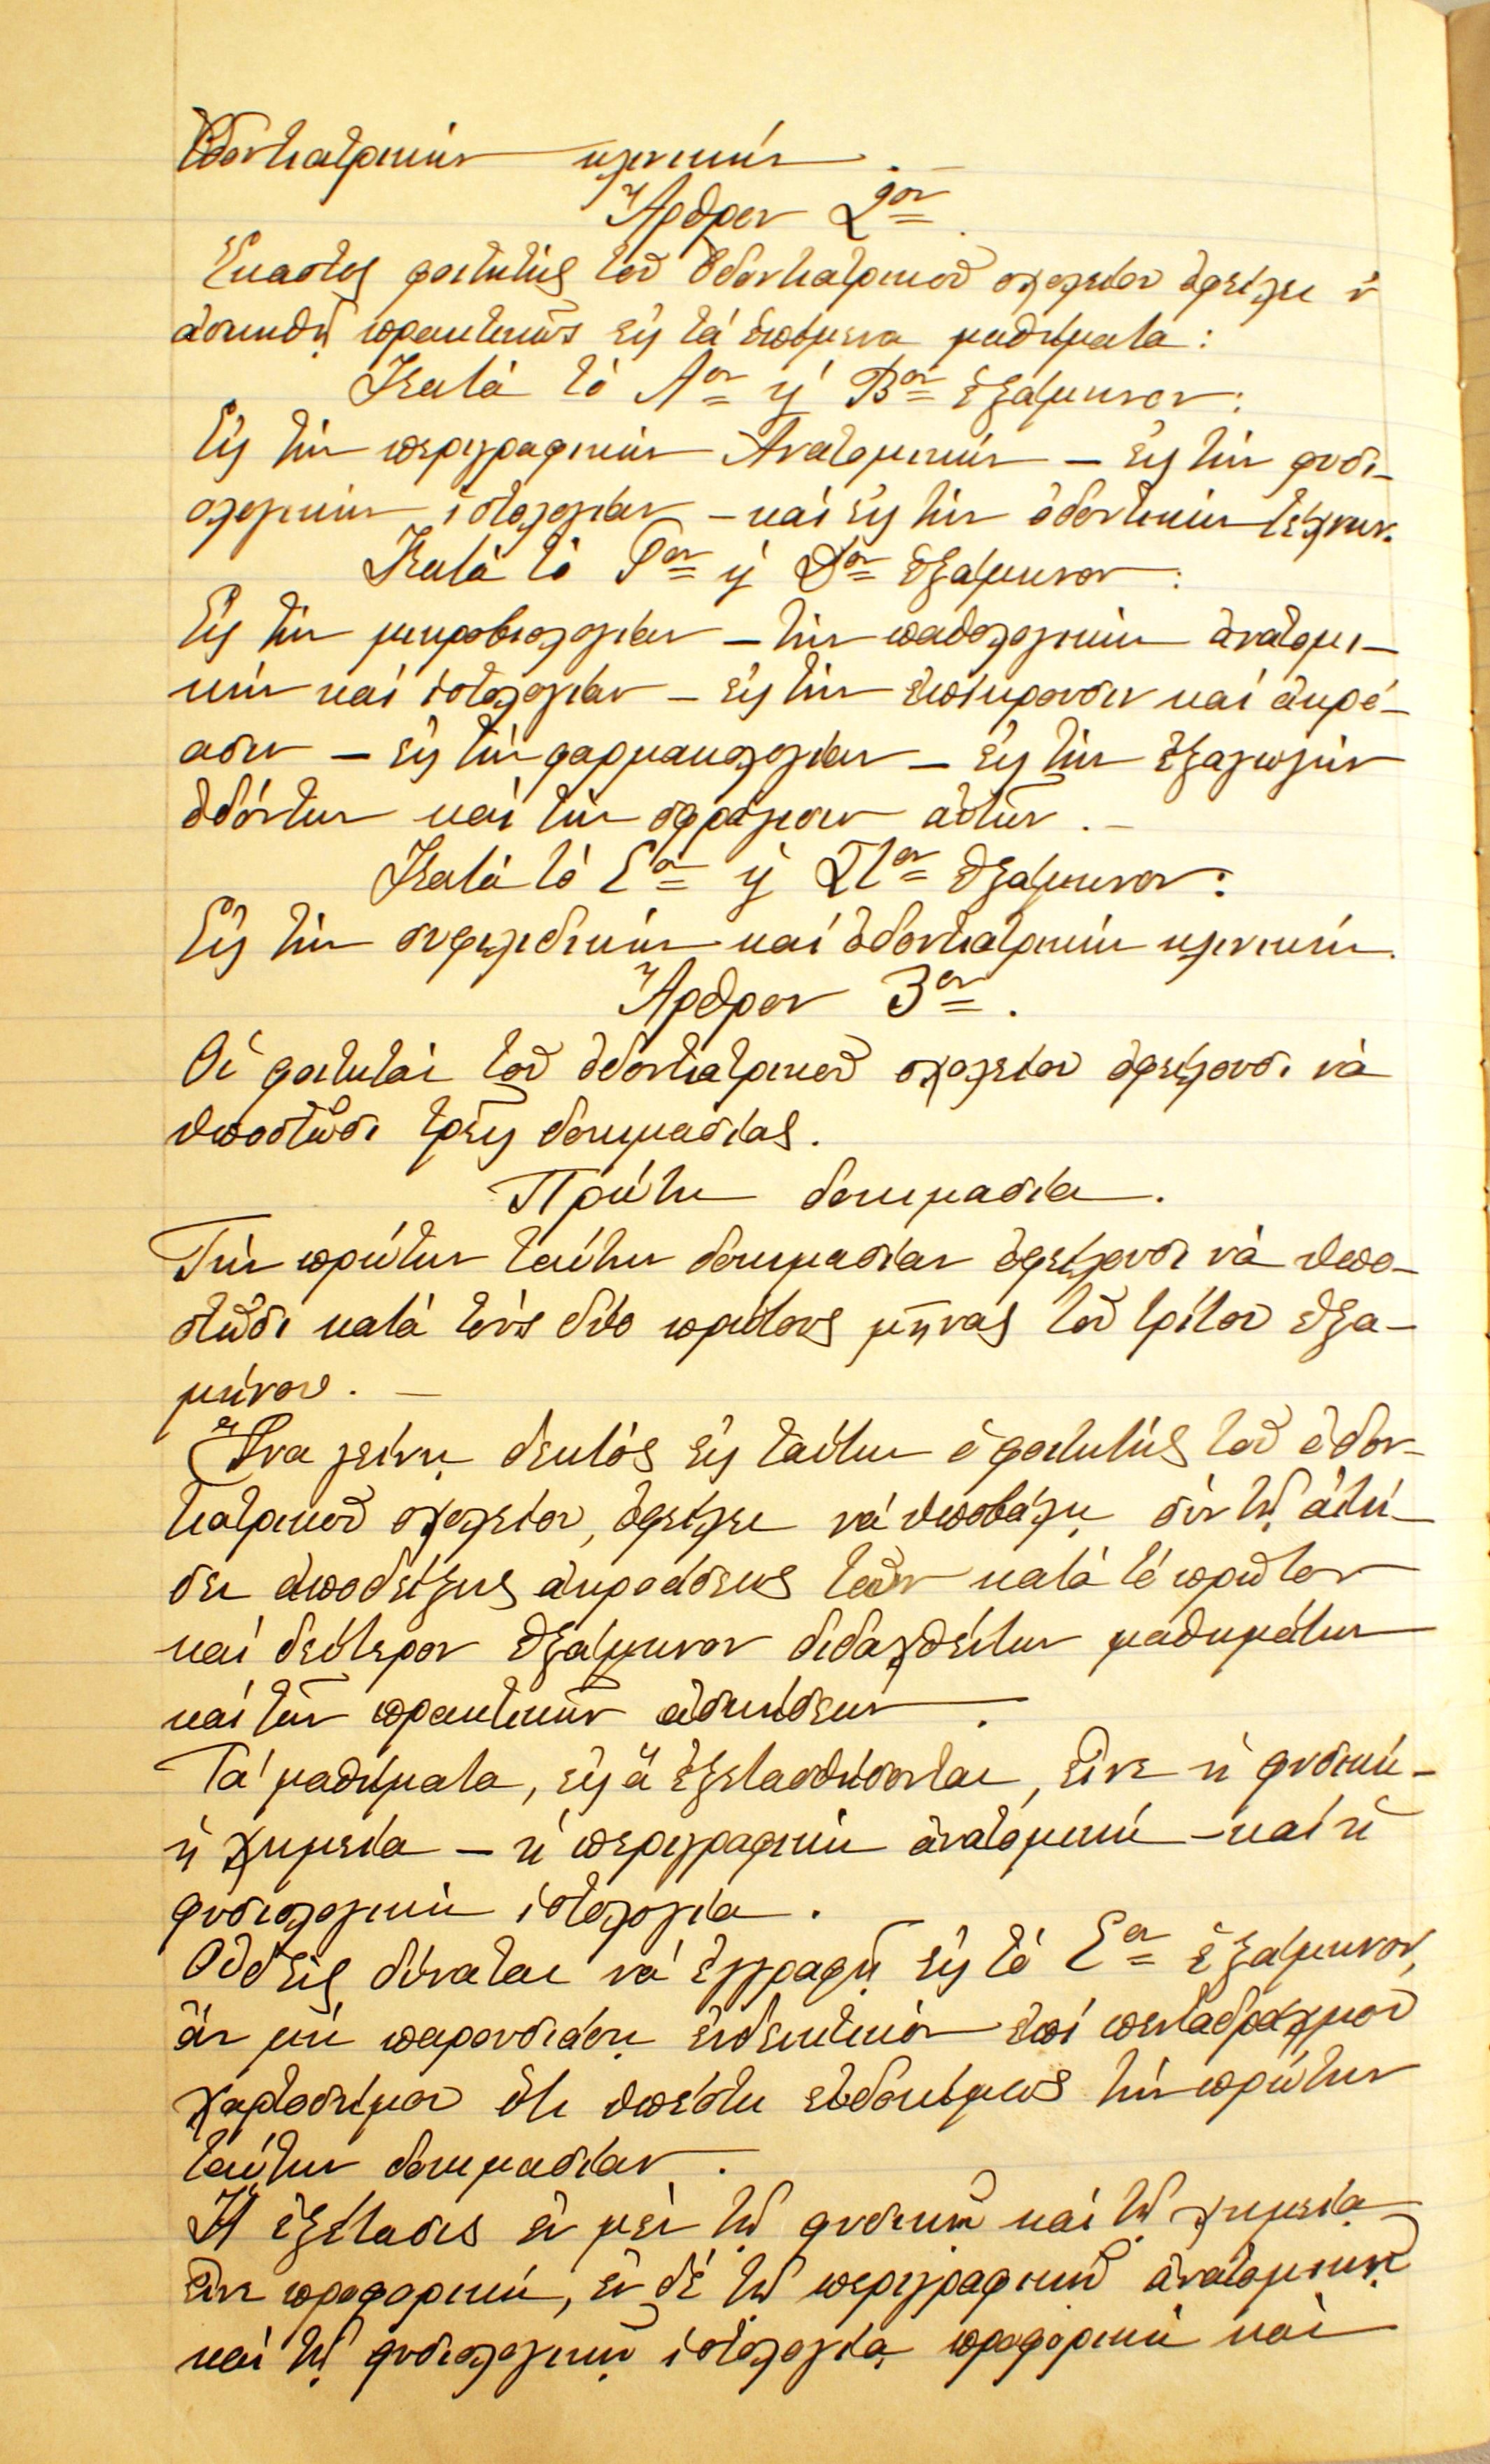 Ὀδοντιατρικὴν κλινικήν.—
Ἄρθρον 2ον.
Ἕκαστος φοιτητὴς τοῦ Ὀδοντιατρικοῦ σχολείου ὀφείλει ν'
ἀσκηθῇ πρακτικῶς εἰς τὰ ἑπόμενα μαθήματα:
Κατὰ τὸ Αον ἢ Βον ἑξάμηνον:
Εἰς τὴν περιγραφικὴν Ἀνατομικὴν – εἰς τὴν φυσι-
ολογικὴν ἱστολογίαν – καὶ εἰς τὴν ὀδοντικὴν τέχνην.
Κατὰ τὸ Γον ἢ Δον ἑξάμηνον:
Εἰς τὴν μικροβιολογίαν – τὴν παθολογικὴν ἀνατομι-
κὴν καὶ ἱστολογίαν – εἰς τὴν ἐπίκρουσιν καὶ ἀκρό-
ασιν – εἰς τὴν φαρμακολογίαν – εἰς τὴν ἐξαγωγὴν
ὀδόντων καὶ τὴν σφράγισιν αὐτῶν.—
Κατὰ τὸ Εον ἢ ΣΤον ἑξάμηνον:
Εἰς τὴν συφιλιδικὴν καὶ ὀδοντιατρικὴν κλινικήν.
Ἄρθρον 3ον.
Οἱ φοιτηταὶ τοῦ ὀδοντιατρικοῦ σχολείου ὀφείλουσι νὰ
ὑποστῶσι τρεῖς δοκιμασίας.
Πρώτη δοκιμασία.
Τὴν πρώτην ταύτην δοκιμασίαν ὀφείλουσι νὰ ὑπο-
στῶσι κατὰ τοὺς δύο πρώτους μῆνας τοῦ τρίτου ἑξα-
μήνου.—
Ἵνα γείνῃ δεκτὸς εἰς ταύτην ὁ φοιτητὴς τοῦ ὀδον-
τιατρικοῦ σχολείου, ὀφείλει νὰ ὑποβάλῃ σὺν τῇ αἰτή-
σει ἀποδείξεις ἀκροάσεως τῶν κατὰ τὸ πρῶτον
καὶ δεύτερον ἑξάμηνον διδαχθέντων μαθημάτων
καὶ τῶν πρακτικῶν ἀσκήσεων.
Τὰ μαθήματα, εἰς ἃ ἐξετασθήσονται, εἶνε ἡ φυσικὴ –
ἡ χημεία – ἡ περιγραφικὴ ἀνατομικὴ – καὶ ἡ
φυσιολογικὴ ἱστολογία.
Οὐδεὶς δύναται νὰ ἐγγραφῇ εἰς τὸ Εον ἑξάμηνον,
ἂν μὴ παρουσιάσῃ ἐνδεικτικὸν ἐπὶ πενταδράχμου
χαρτοσήμου ὅτι ὑπέστη εὐδοκίμως τὴν πρώτην
ταύτην δοκιμασίαν.
Ἡ ἐξέτασις ἐν μὲν τῇ φυσικῇ καὶ τῇ χημείᾳ
εἶνε προφορική, ἐν δὲ τῇ περιγραφικῇ ἀνατομικῇ
καὶ τῇ φυσιολογικῇ ἱστολογίᾳ προφορικὴ καὶ